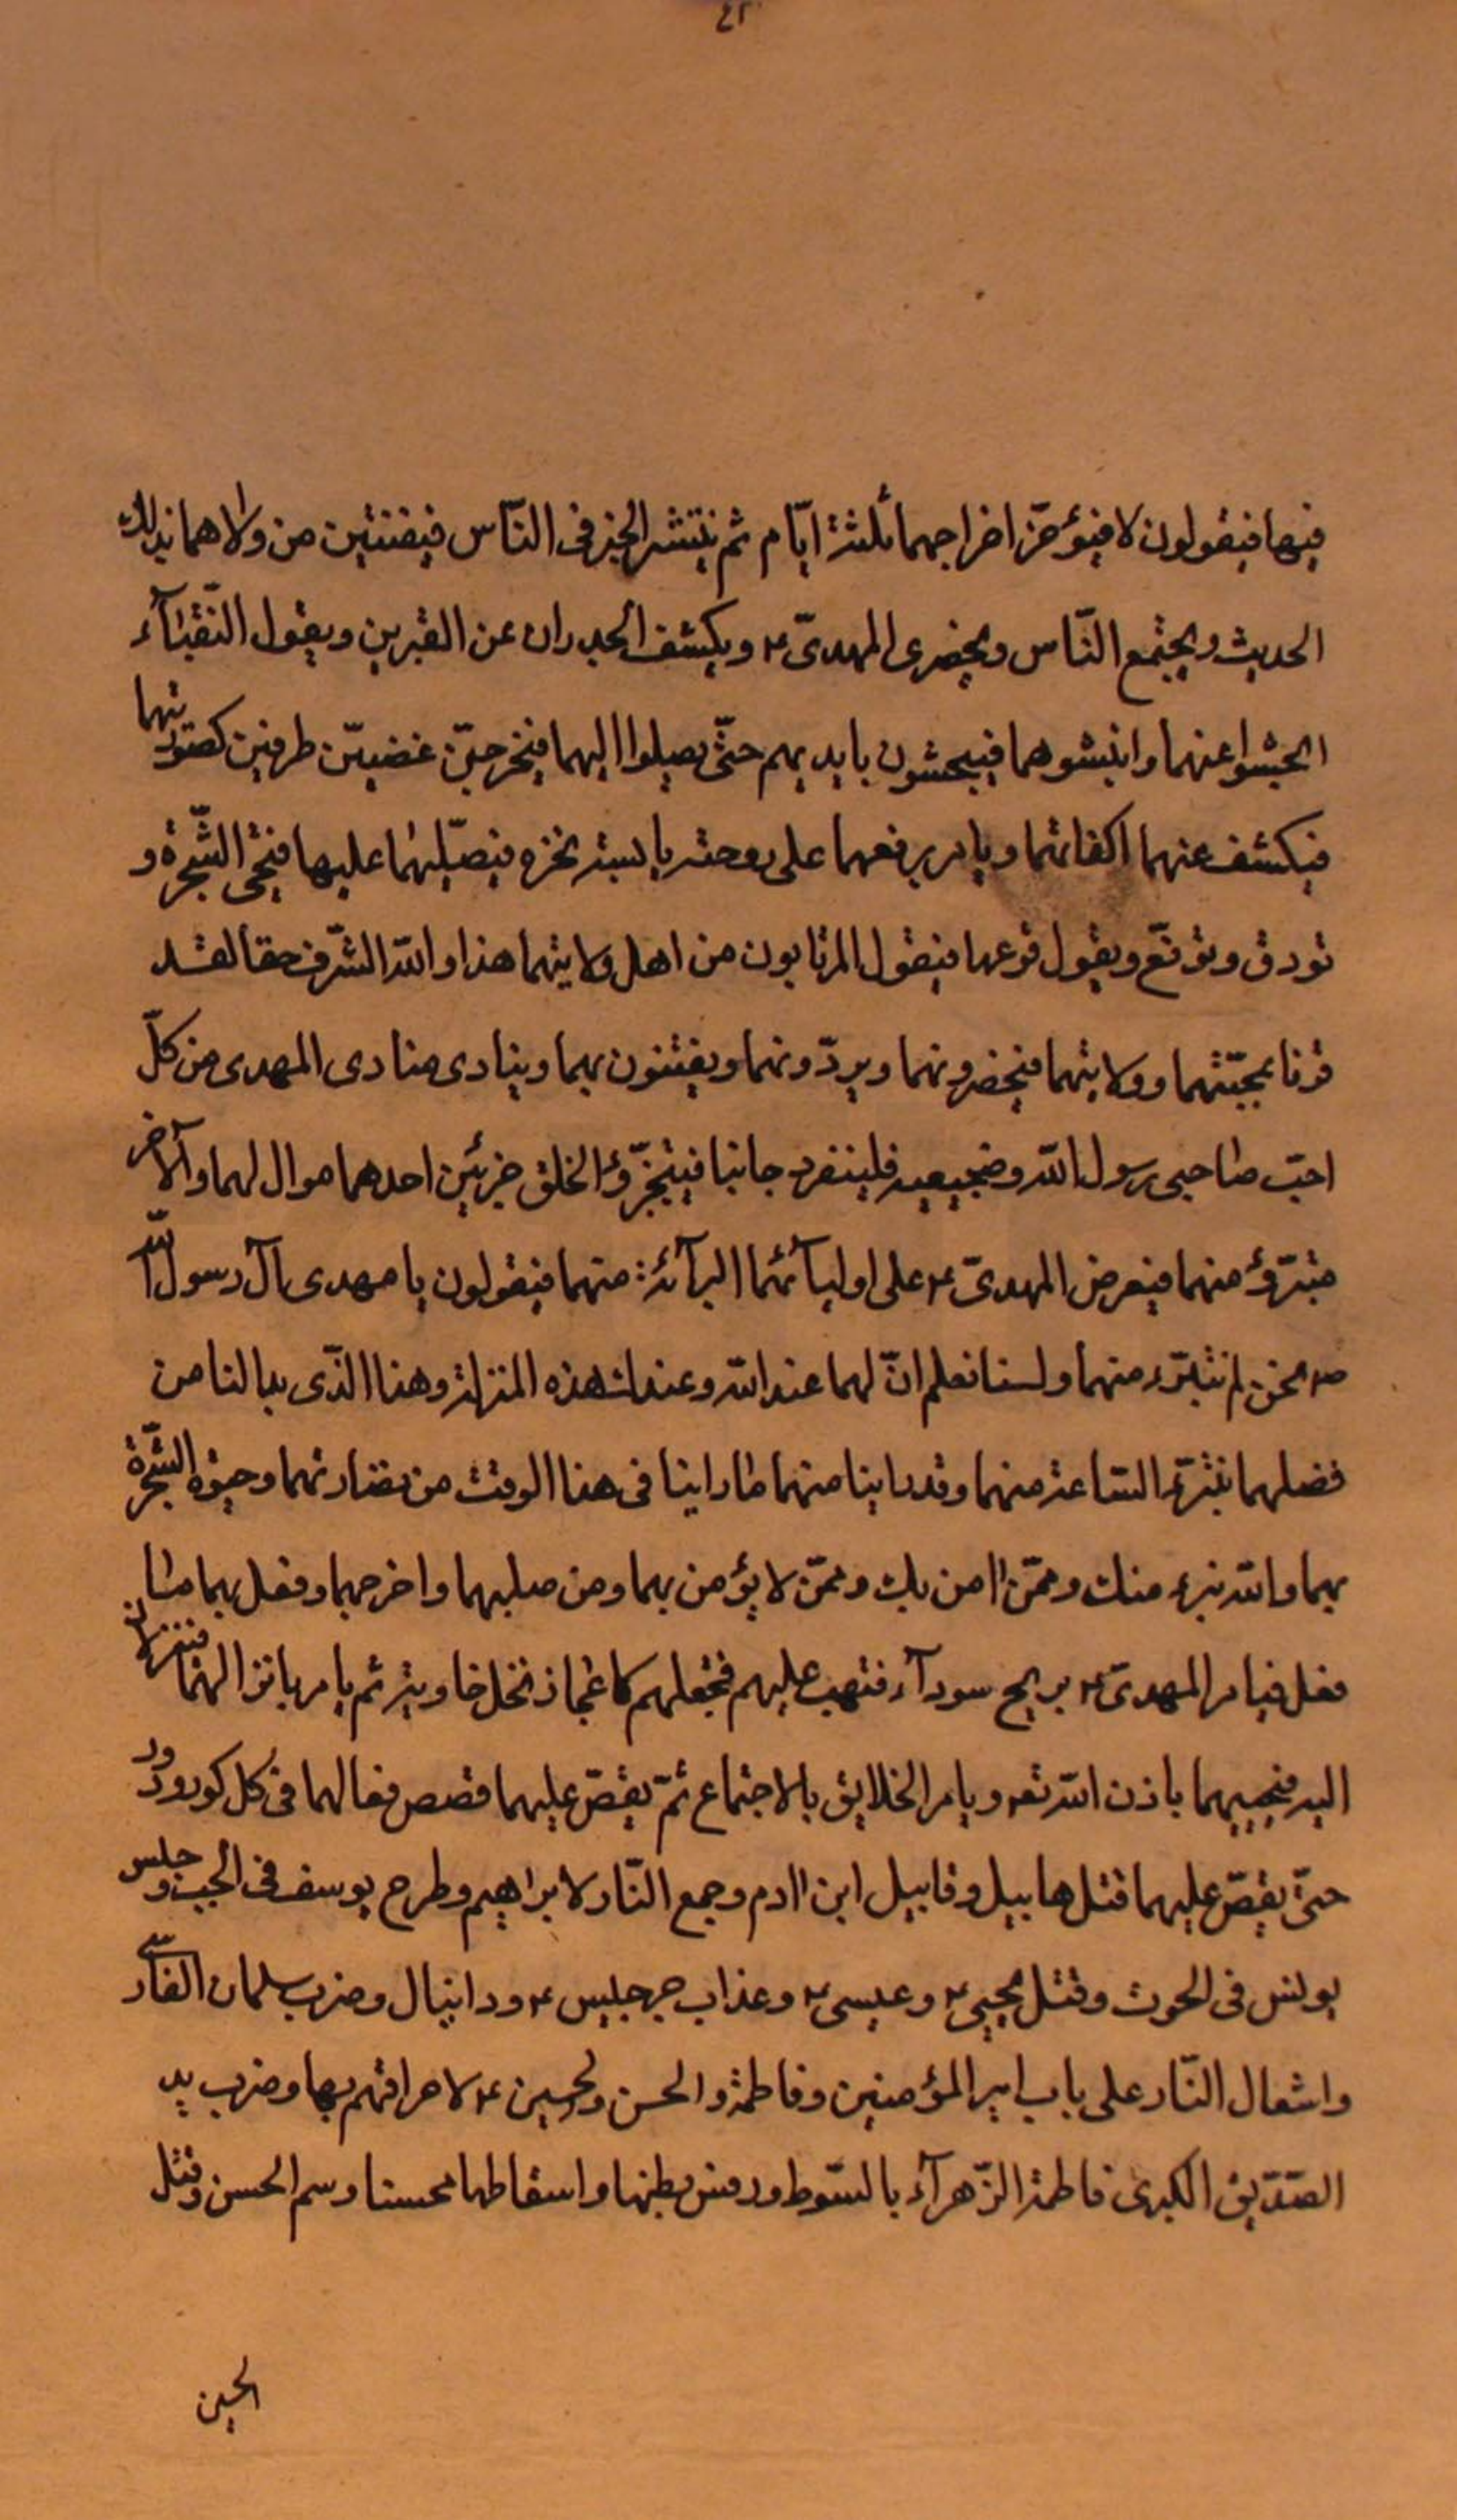 ٤٢
فيها فيقولون لا فيؤخّر اخراجهما ثلثة ايّام ثم ينتشر الخبز فى النّاس فيفنتين من والاهما بذلك
الحديث ويجتمع النّاس ويحضرى المهدىّ ؏ ويكشف الجدران عن القبرين ويقول النّقبآء
ابحثوا عنهما وانبشوهما فيبحثون بايديهم حتّى يصلوا اليهما فيخرجيّن غضيّين طرفين كصورتهما
فيكشف عنهما اكفانهما ويامر برفعهما على دوحته يابسته نخزه فيصّلبهما عليها فيحى الشّجرة و
تورق وتونع ويقول فرعها فيقول المرتابون من اهل ولايتهما هذا والله الشّرف حقا لقد
فزنا بمحبّتهما وولايتهما فيحضرونهما ويردّونهما ويفتنون بهما وينادى منادى المهدى من كلّ
احبّ صاحبى رسول الله وضجيعيه فلينفرد جانبا فيتجزّؤ الخلق جزئين احدهما موال لهما والآخر
متبرّؤ منهما فيعرض المهدىّ ؏ على اوليآئهما البرآئة منهما فيقولون يا مهدى آل رسول الله
ص نحن لم نتبرّء منهما ولسنا نعلم انّ لهما عند الله وعندك هذه المنزلة وهذا الذّى بدا لنا من
فضلهما نتبرّء السّاعة منهما وقد راينا منهما ما راينا فى هذا الوقت من نضارتهما وحيوة الشّجرة
بهما والله نبرء منك وممّن اامن بك وممّن لا يؤمن بهما ومن صلبهما واخرجهما وفعل بهما ما
فعل فيامر المهدىّ ؏ بريح سودآء فتهب عليهم فتجعلهم كاعجاز نخل خاويه ثم يامر بانزالهما فينزلان
اليه فيحييهما باذن الله تعه ويامر الخلايق بالاجتماع ثمّ يقصّ عليهما قصص فعالهما فى كل كور ودور
حتّى يقصّ عليهما قتل هابيل وقابيل ابن اادم وجمع النّار لابراهيم وطرح يوسف فى الجب وجلس
يونس فى الحوت وقتل يحيى ؏ وعيسى ؏ وعذاب جرجيس ؏ ودانيال وضرب سلمان الفارسى
واشعال النّار على باب امير المؤمنين وفاطمة والحسن ولحسين ؏ لاحراقهم بها وضرب يد
الصّدّيق الكبرى فاطمة الزّهرآء بالسّوط ورفس بطنها واسقاطها محسنا وسم الحسن وقتل
الحسين